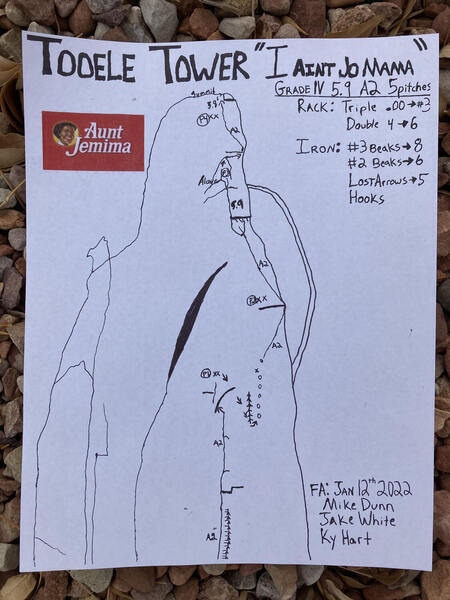 TOOELE TOWER "I AINT JO MAMA"
GRADE IV 5.9 A2 5 pitches
RACK: Triple .00→#3
Double 4→6
IRON: #3 Beaks→8
#2 Beaks→6
Lost Arrows→5
Hooks
Aunt
Jemima
Summit
5.9
XX
A2
5.9
A2
XX
A2
P1 XX
x
A2
A2
FA: JAN 12th 2022
Mike Dunn
Jake White
Ky Hart